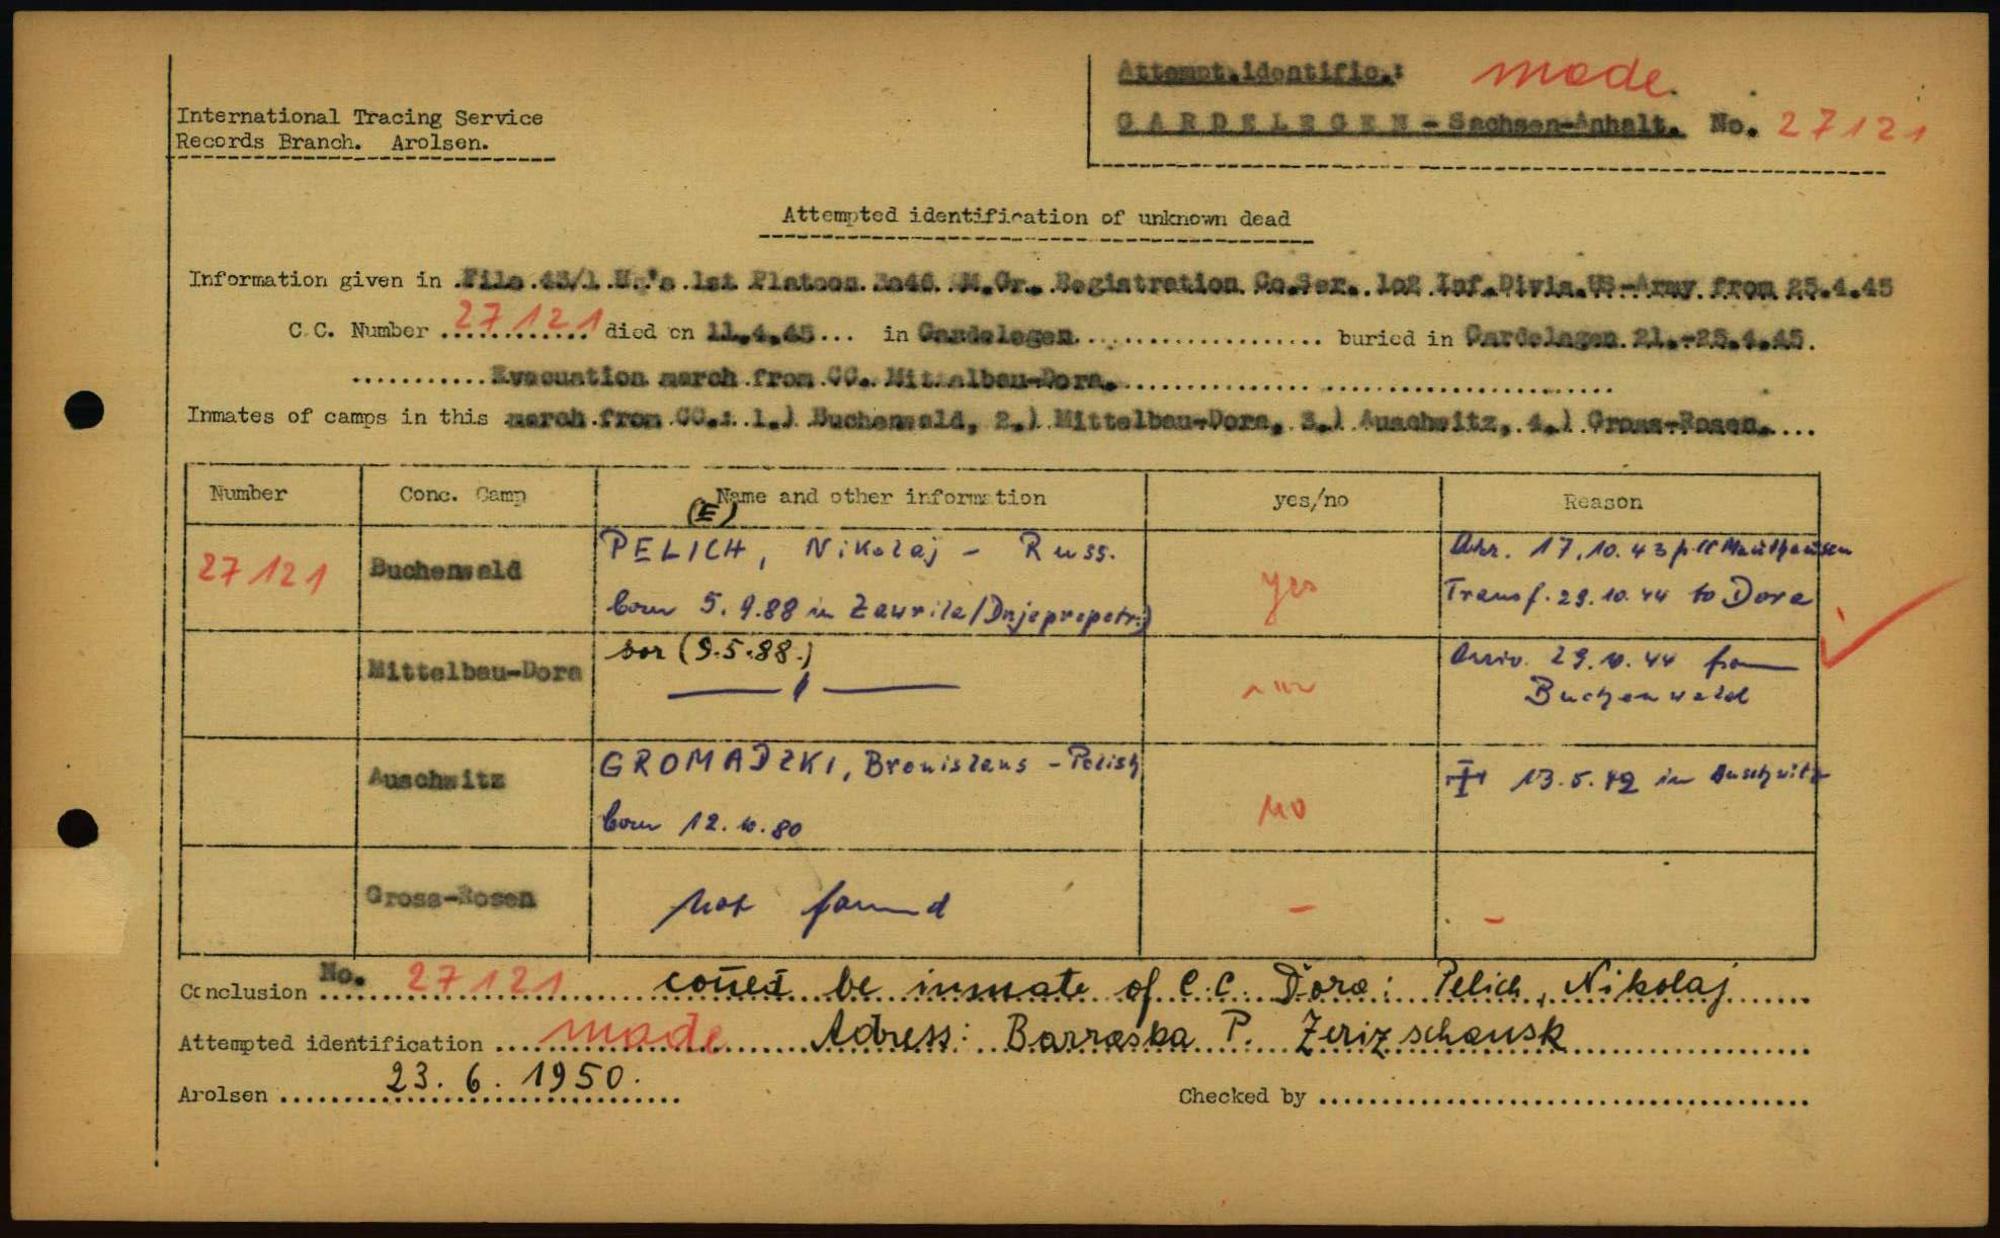 Attempt.identific.: made.
International Tracing Service
Records Branch. Arolsen.
GARDELEGEN - Sachsen-Anhalt. No. 27121
Attempted identification of unknown dead
Information given in File 43/1 1st Platoon 3046 M.Gr. Registration Co.Ser. 102 Inf.Divis.US-Army from 25.4.45
C.C. Number 27121 died on 11.4.45 in Gardelegen buried in Gardelegen 21.-25.4.45.
Evacuation march from CC. Mittelbau-Dora.
Inmates of camps in this march from CC.: 1.) Buchenwald, 2.) Mittelbau-Dora, 3.) Auschwitz, 4.) Gross-Rosen.
Number Conc. Camp Name and other information yes/no Reason
(E)
27121 Buchenwald PELICH, Nikolaj - Russ. yes Arr. 17.10.43 Mauthausen
born 5.9.88 in Zawrila/Dnjepropetr.) Transf. 29.10.44 to Dora
Mittelbau-Dora (9.5.88.) Arriv. 29.10.44 from
— " — Buchenwald
Auschwitz GROMADZKI, Bronislaus - Polish no 13.5.42 in Auschwitz
born 12.10.80
Gross-Rosen not found - -
Conclusion No. 27121 could be inmate of C.C. Dora: Pelich, Nikolaj
Attempted identification made Adress: Barraska P. Zerizschansk
Arolsen 23.6.1950. Checked by